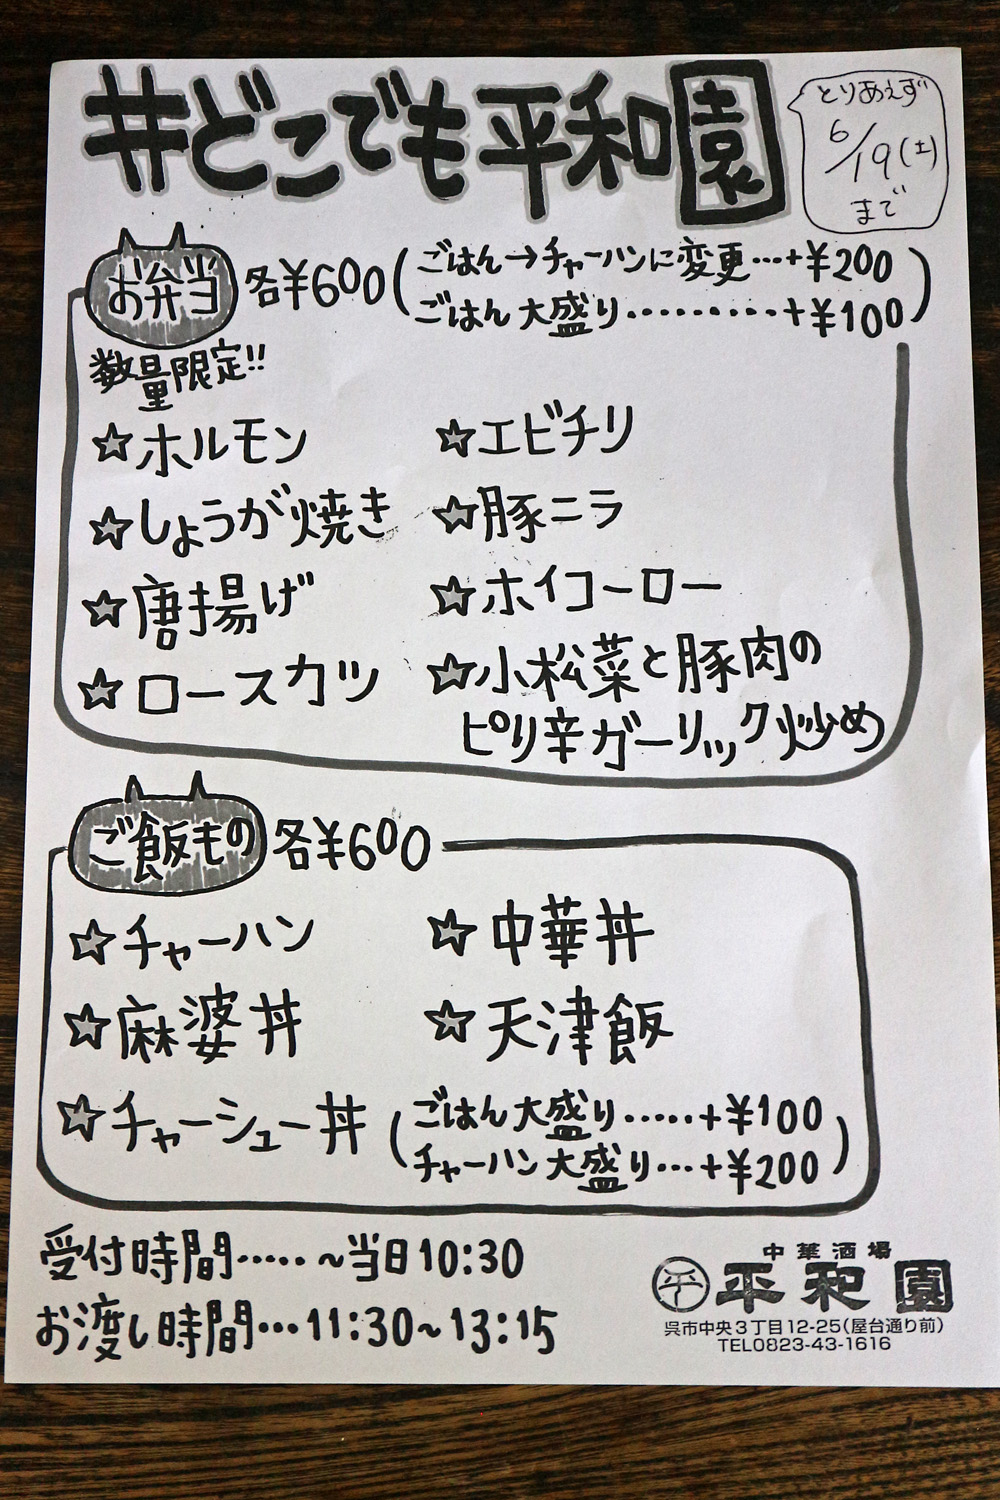 #どこでも平和園
とりあえず
6/19(土)
まで
お弁当 各¥600(ごはん→チャーハンに変更…+¥200
ごはん大盛り‥‥‥‥‥+¥100)
数量限定!!
☆ホルモン ☆エビチリ
☆しょうが焼き ☆豚ニラ
☆唐揚げ ☆ホイコーロー
☆ロースカツ ☆小松菜と豚肉の
ピリ辛ガーリック炒め
ご飯もの 各¥600
☆チャーハン ☆中華丼
☆麻婆丼 ☆天津飯
☆チャーシュー丼 (ごはん大盛り‥‥・+¥100
チャーハン大盛り…+¥200)
受付時間‥‥・~当日10:30
お渡し時間…11:30~13:15
中華酒場
㊉平和園
呉市中央3丁目12-25(屋台通り前)
TEL0823-43-1616